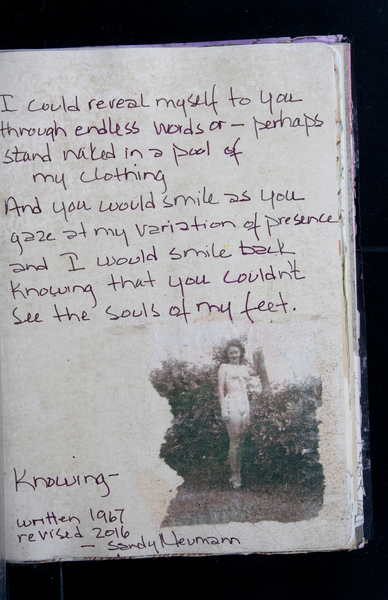 I could reveal myself to you
through endless words or – perhaps
stand naked in a pool of
my clothing
And you would smile as you
gaze at my variation of presence
and I would smile back
Knowing that you couldn't
see the souls of my feet.
Knowing –
written 1967
revised 2016
– Sandy Neumann